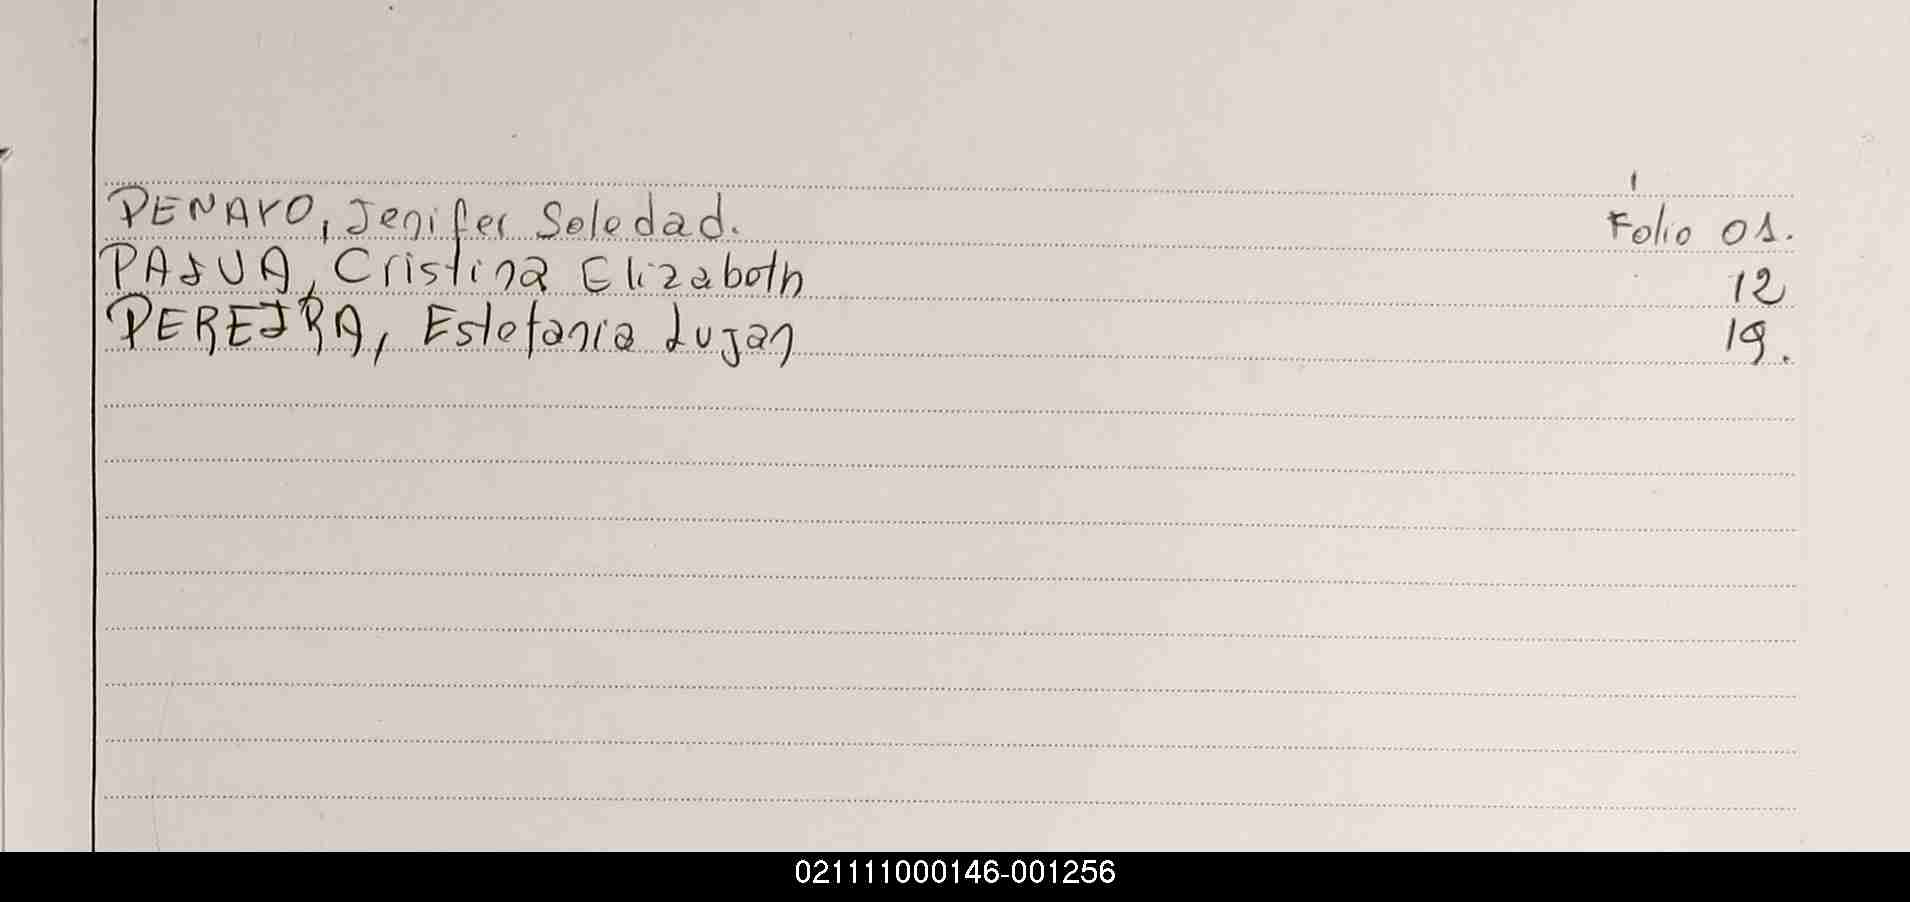 PENAYO, Jenifer Soledad. Folio 01.
PAIUA, Cristina Elizabeth 12
PEREIRA, Estefania Lujan 19.
021111000146-001256